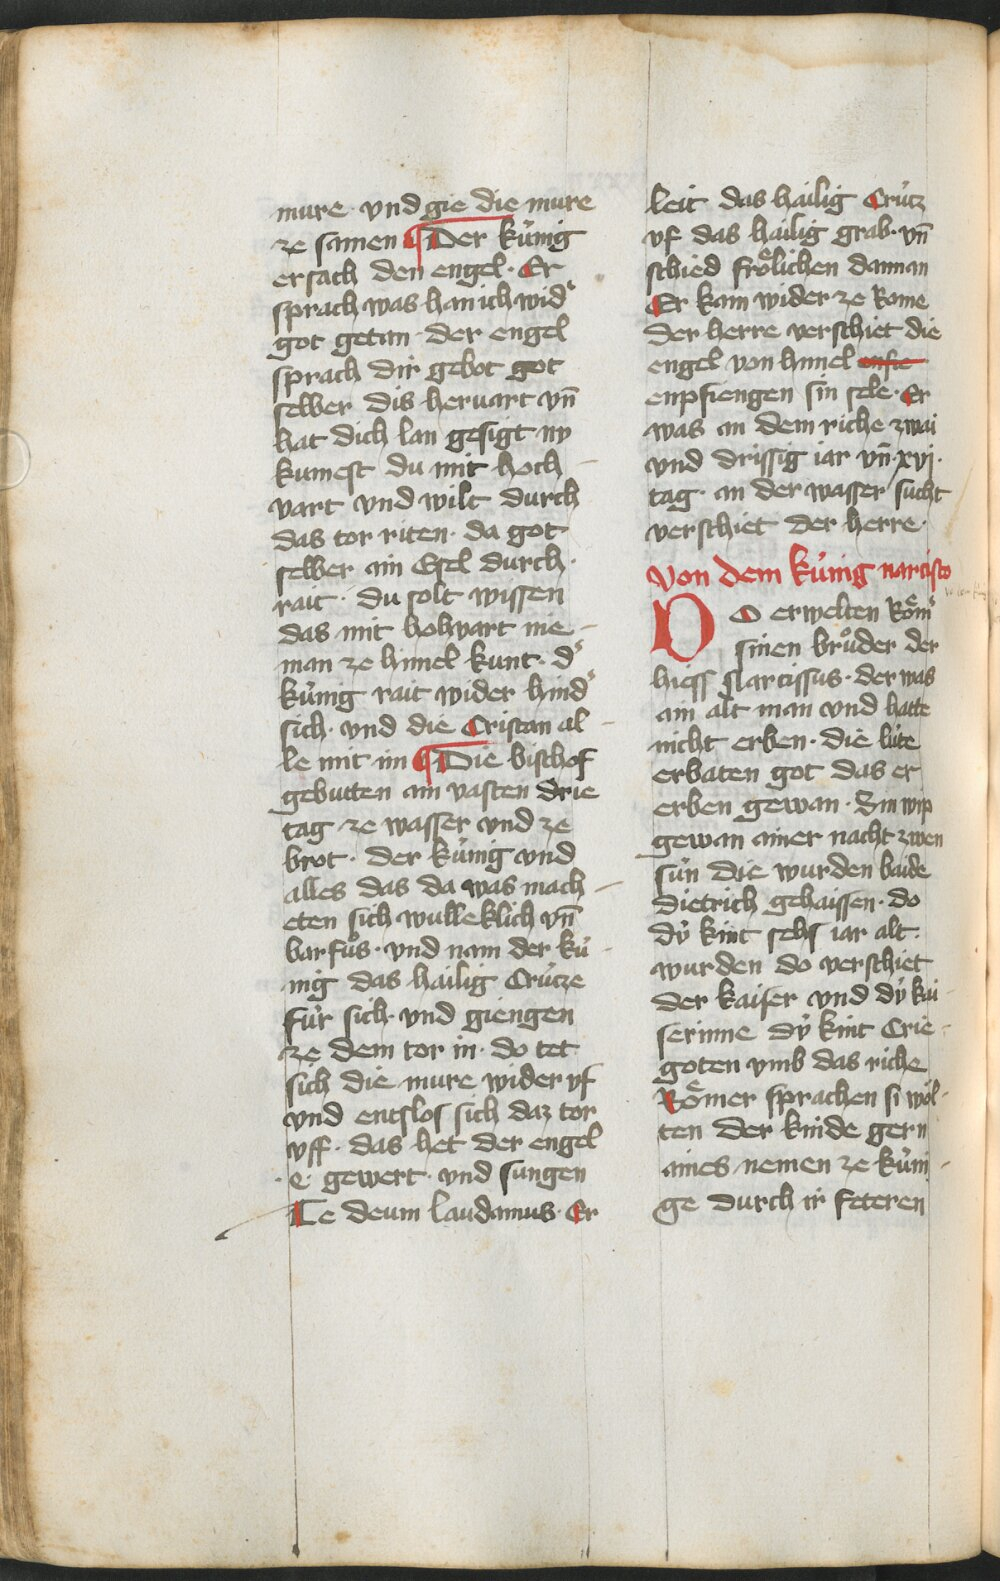 mure · vnd gie die mure
ze samen ¶ Der kúnig
ersach den engel · Er
sprach was han ich wid͛
got getan · der engel
sprach dir gebot got
selber dis hervart vn̄
hat dich lan gesigt ny
kumest du mit hoch
vart vnd wilt durch
das tor riten · da got
selber ain Esel durch ·
rait · du solt wissen
das mit hohvart nie
man ze himel kunt · d͛
kúnig rait wider hind͛
sich · vnd die Cristan al
le mit im ¶ Die bischof
gebutten ain vasten drie
tag ze wasser vnd ze
brot · der kúnig vnd
alles das da was mach
eten sich wulleklich vn̄
barfůs · vnd nam der kú
nig das hailig Crúcze
fúr sich · vnd giengen
ze dem tor in · do tet
sich die mure wider vf
vnd entslos sich daz tor
vff · das het der engel
· e · gewert · vnd sungen
Te deum laudamus · Er
leit das hailig Crúcz
vf das hailig grab · vn̄
schied frȯlichen dannan
Er kam wider ze Rome
der herre verschiet die
engel von himel
enpfiengen sin sele · Er
was an dem riche zwai
vnd drissig iar vn̄ · xvj ·
tag · an der wasser sucht
verschiet der herre ·
Von dem kúnig narcisto
DO erwelten Rȯm͛
sinen brůder der
hiess Narcissus · der was
ain alt man vnd hatte
nicht erben · die lúte
erbaten got das er
erben gewan · Sin wip
gewan ainer nacht zwen
sún die wurden baide
dietrich gehaissen · do
dú kint sehs iar alt ·
wurden do verschiet
der kaiser vnd dú kai
serinne dú kint Crie
goten vmb das riche
Rȯmer sprachen si wȯl
ten der kinde gern
aines nemen ze kúni
ge durch ir feteren